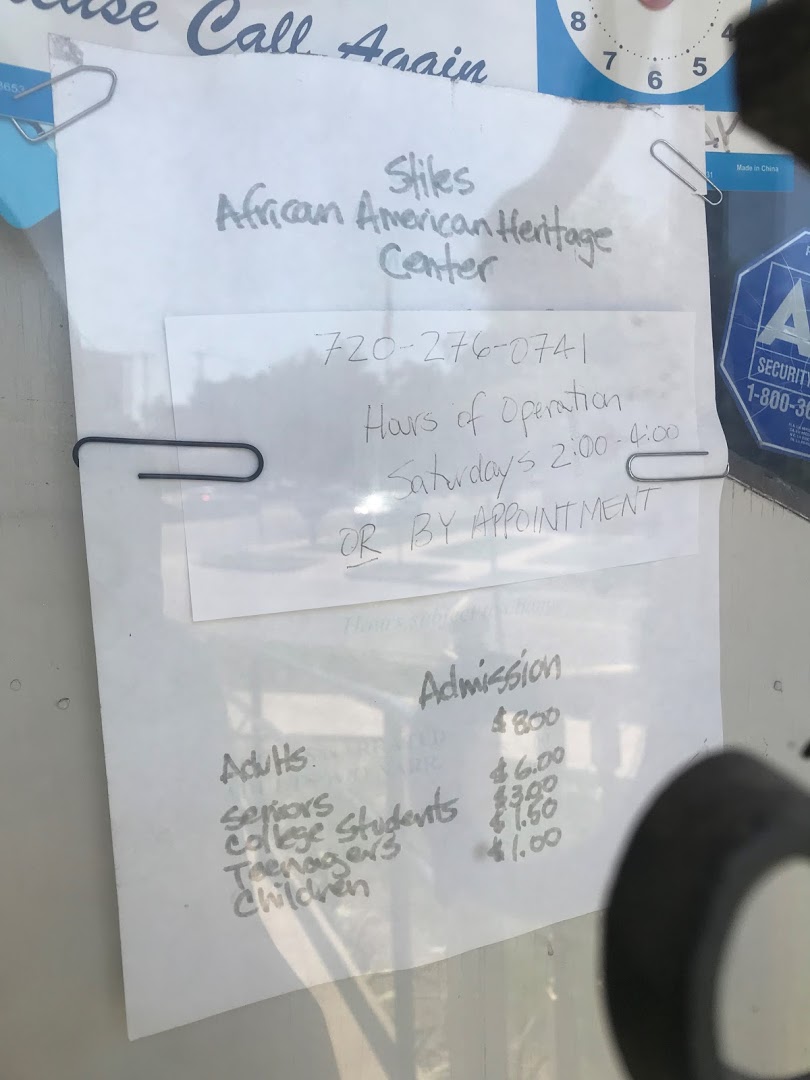 Call Again
8
7
6
5
4
Made in China
Stiles
African American Heritage
Center
720-276-0741
Hours of Operation
Saturdays 2:00-4:00
OR BY APPOINTMENT
SECURITY
1-800-3
Admission
Adults $8.00
Seniors $6.00
College Students $3.00
Teenagers $1.50
Children $1.00